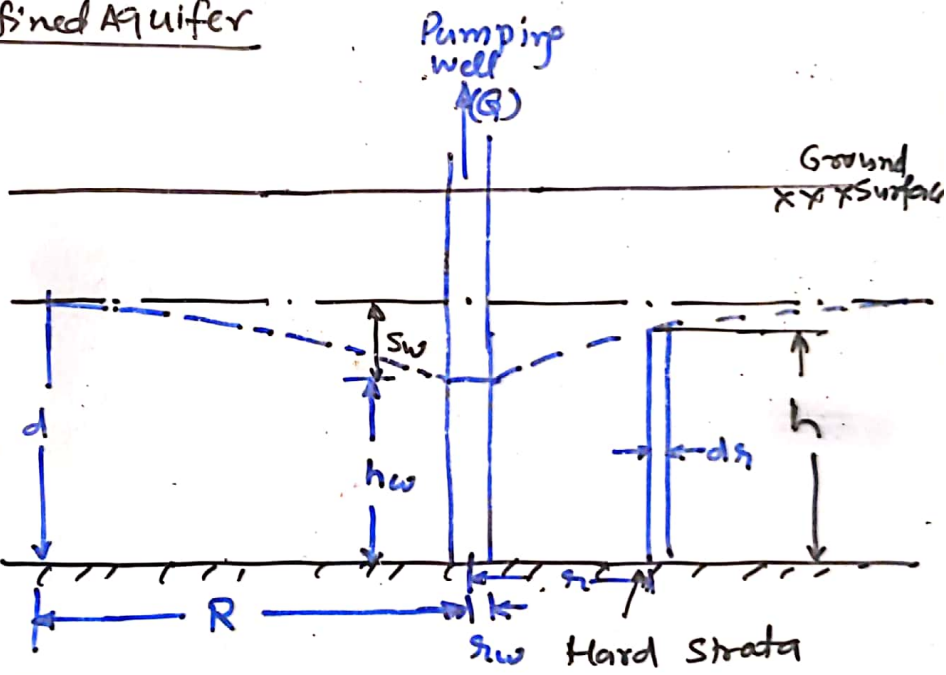 fined Aquifer
Pumping
well
(Q)
Ground
xxx Surface
Sw
d
h
hw
dr
r
R
rw
Hard Strata